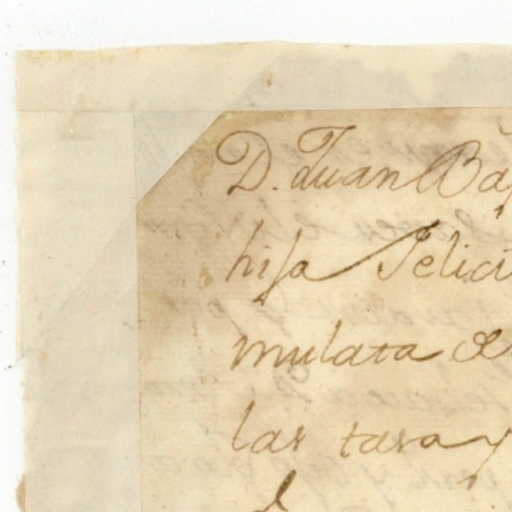 D. Juan Bap
hija Felici
mulata de
las tasa y